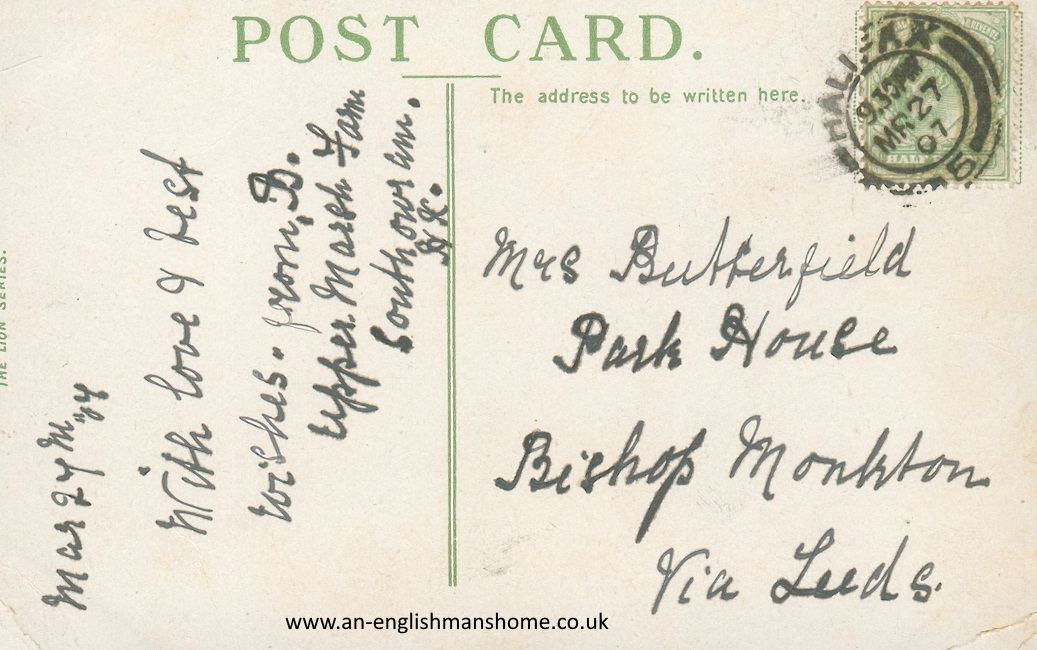 POST CARD.
The address to be written here.
THE LION SERIES.
HALIFAX
9.30PM
MR 27
07
HALF
Mar 27
With love & best
wishes. from, B.
Upper Marsh Farm
Southowram.
HX.
Mrs Butterfield
Park House
Bishop Monkton
Via Leeds.
www.an-englishmanshome.co.uk